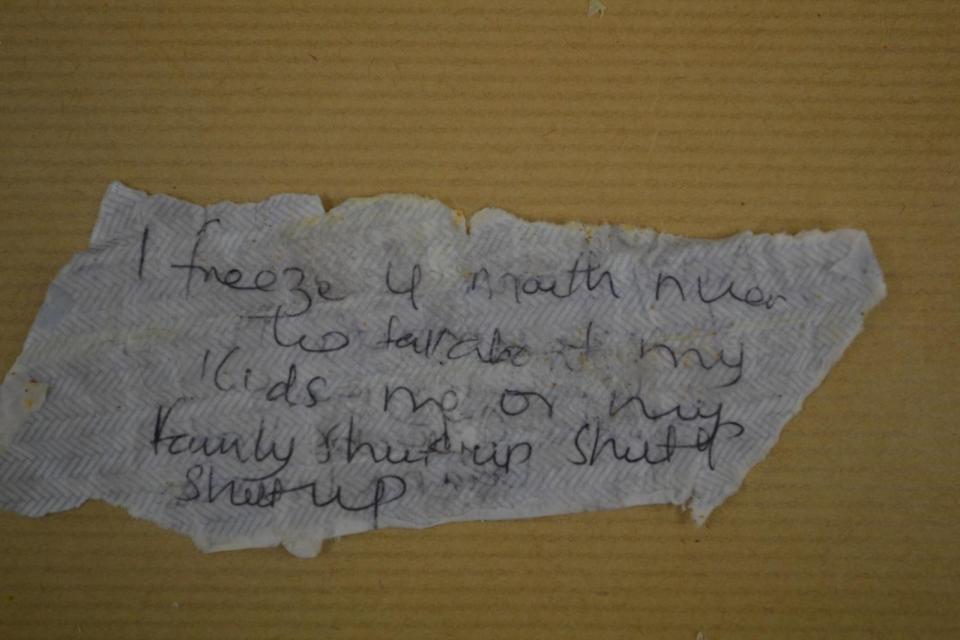 I freeze 4 mouth nuer
to talk about my
Kids me or my
family shut up shut up
Shut up